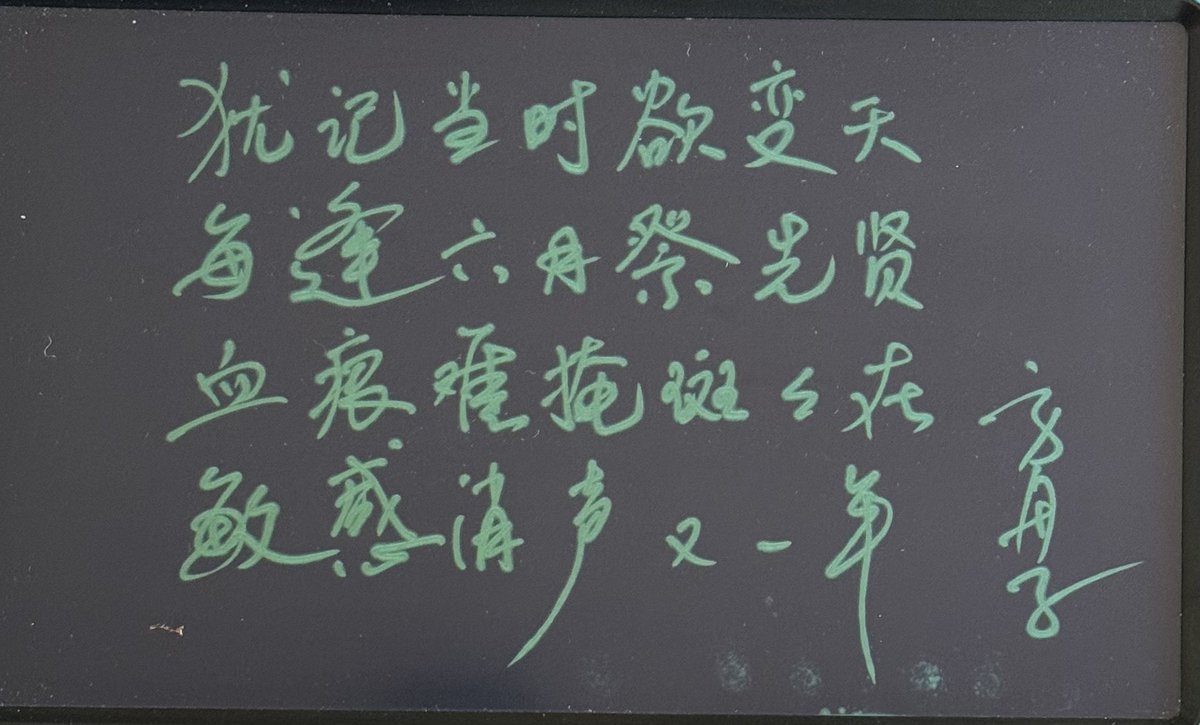 犹记当时欲变天
每逢六月祭先贤
血痕难掩斑々在
敏感消声又一年
方舟子